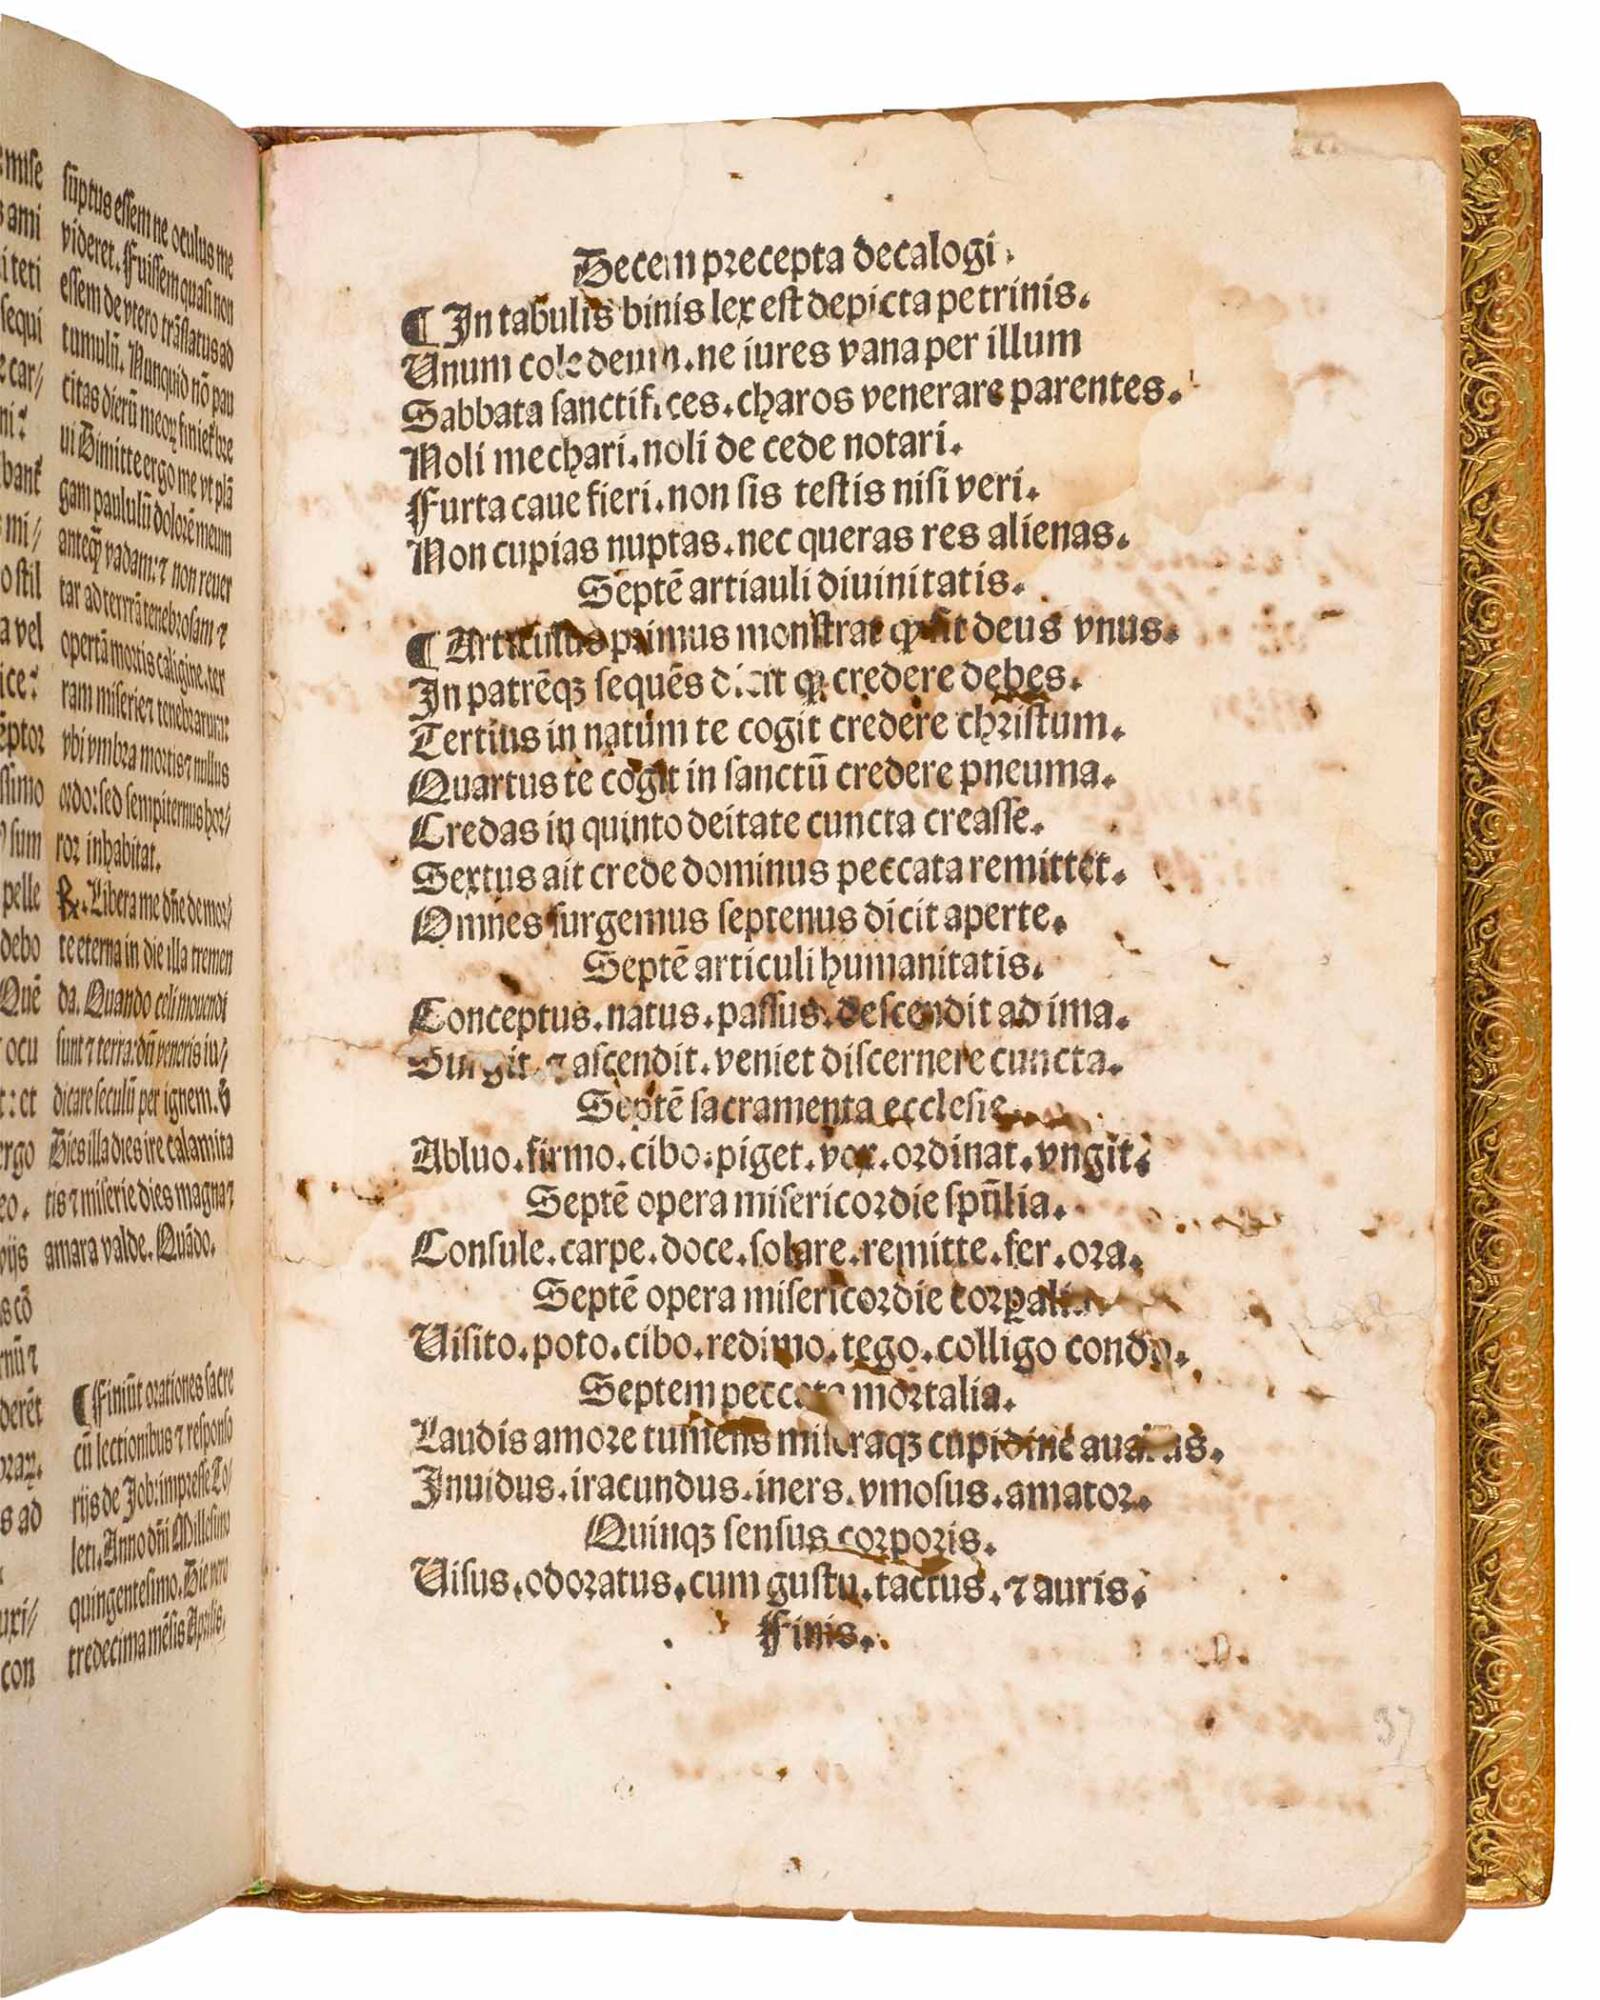 mise
ami
i teti
sequi
car/
ni:
banť
mi/
o stil
a vel
ice:
ēptoꝛ
ssimo
sum
pelle
debo
Quē
ocu
t: et
ergo
eo.
pijs
as cō
rnū ⁊
derēt
oꝛaꝝ.
s ad
uxi//
con
sūptus essem ne oculus me
videret. Fuissem quasi non
essem de vtero trāslatus ad
tumulū. Nunquid nō pau
citas dierū meoꝝ finiet᷑ bꝛe
ui Dimitte ergo me vt plā
gam paululū dolorē meum
anteq̄ꝫ vadam: ⁊ non reuer
tar ad terrrā tenebꝛosam ⁊
opertā moꝛtis caligine. ter
ram miserie ⁊ tenebꝛarum:
vbi vmbꝛa moꝛtis ⁊ nullus
oꝛdo: sed sempiternus hoꝛ/
roꝛ inhabitat.
℞. Libera me dn̄e de moꝛ/
te eterna in die illa tremen
da. Quando celi mouendi
sunt ⁊ terra: dū veneris iu/
dicare seculū per ignem. ℣
Dies illa dies ire calamita
tis ⁊ miserie dies magna ⁊
amara valde. Quādo.
¶ Finiūt oꝛationes sacre
cū lectionibus ⁊ responso
rijs de Job: impꝛesse To/
leti. Anno dn̄i Millesimo
quingentesimo. Die vero
tredecima mēsis Apꝛilis.
Decem pꝛecepta decalogi.
¶ In tabulis binis lex est depicta petrinis.
Unum cole deum. ne iures vana per illum
Sabbata sanctifices. charos venerare parentes.
Noli mechari. noli de cede notari.
Furta caue fieri. non sis testis nisi veri.
Non cupias nuptas. nec queras res alienas.
Septē artiauli diuinitatis.
¶ Articulus pꝛimus monstrat ꝙ sit deus vnus.
In patrēqꝫ sequēs dicit ꝙ credere debes.
Tertius in natum te cogit credere christum.
Quartus te cogit in sanctū credere pneuma.
Credas in quinto deitate cuncta creasse.
Sextus ait crede dominus peccata remittet.
Omnes surgemus septenus dicit aperte.
Septē articuli humanitatis.
Conceptus. natus. passus. descendit ad ima.
Surgit. ⁊ ascendit. veniet discernere cuncta.
Septē sacramenta ecclesie
Abluo. firmo. cibo. piget. vxoꝛ. oꝛdinat. vngit.
Septē opera misericoꝛdie spūlia.
Consule. carpe. doce. solare. remitte. fer. oꝛa.
Septē opera misericoꝛdie coꝛpalia
Uisito. poto. cibo. redimo. tego. colligo condo.
Septem peccata moꝛtalia.
Laudis amoꝛe tumens miseraqꝫ cupidine auarus.
Inuidus. iracundus. iners. vinosus. amatoꝛ.
Quinqꝫ sensus coꝛpoꝛis.
Uisus. odoꝛatus. cum gustu. tactus. ⁊ auris.
Finis.
37